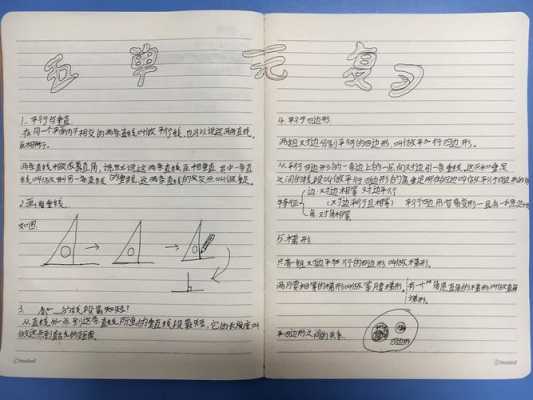 五单元复习
1. 平行与垂直
在同一个平面内不相交的两条直线叫做平行线，也可以说这两条直线
互相平行。
两条直线相交成直角，就是说这两条直线互相垂直，其中一条直
线叫做另一条直线的垂线，这两条直线的交点叫做垂足。
2. 画垂线。
如图
3.
从直线外一点到这条直线所画的垂直线段最短，它的长度叫
做这点到直线的距离。
4. 平行四边形
两组对边分别平行的四边形叫做平行四边形。
从平行四边形的一条边上的一点向对边引一条垂线，这点和垂足
之间的线段叫做平行四边形的高，垂足所在的边叫做平行四边形的底
特征
边：对边相等 对边平行
（对边平行且相等）
角：对角相等
5. 梯形
只有一组对边平行的四边形叫做梯形。
两腰相等的梯形叫做等腰梯形。有一个角是直角的梯形叫做直角
梯形。
四边形之间的关系